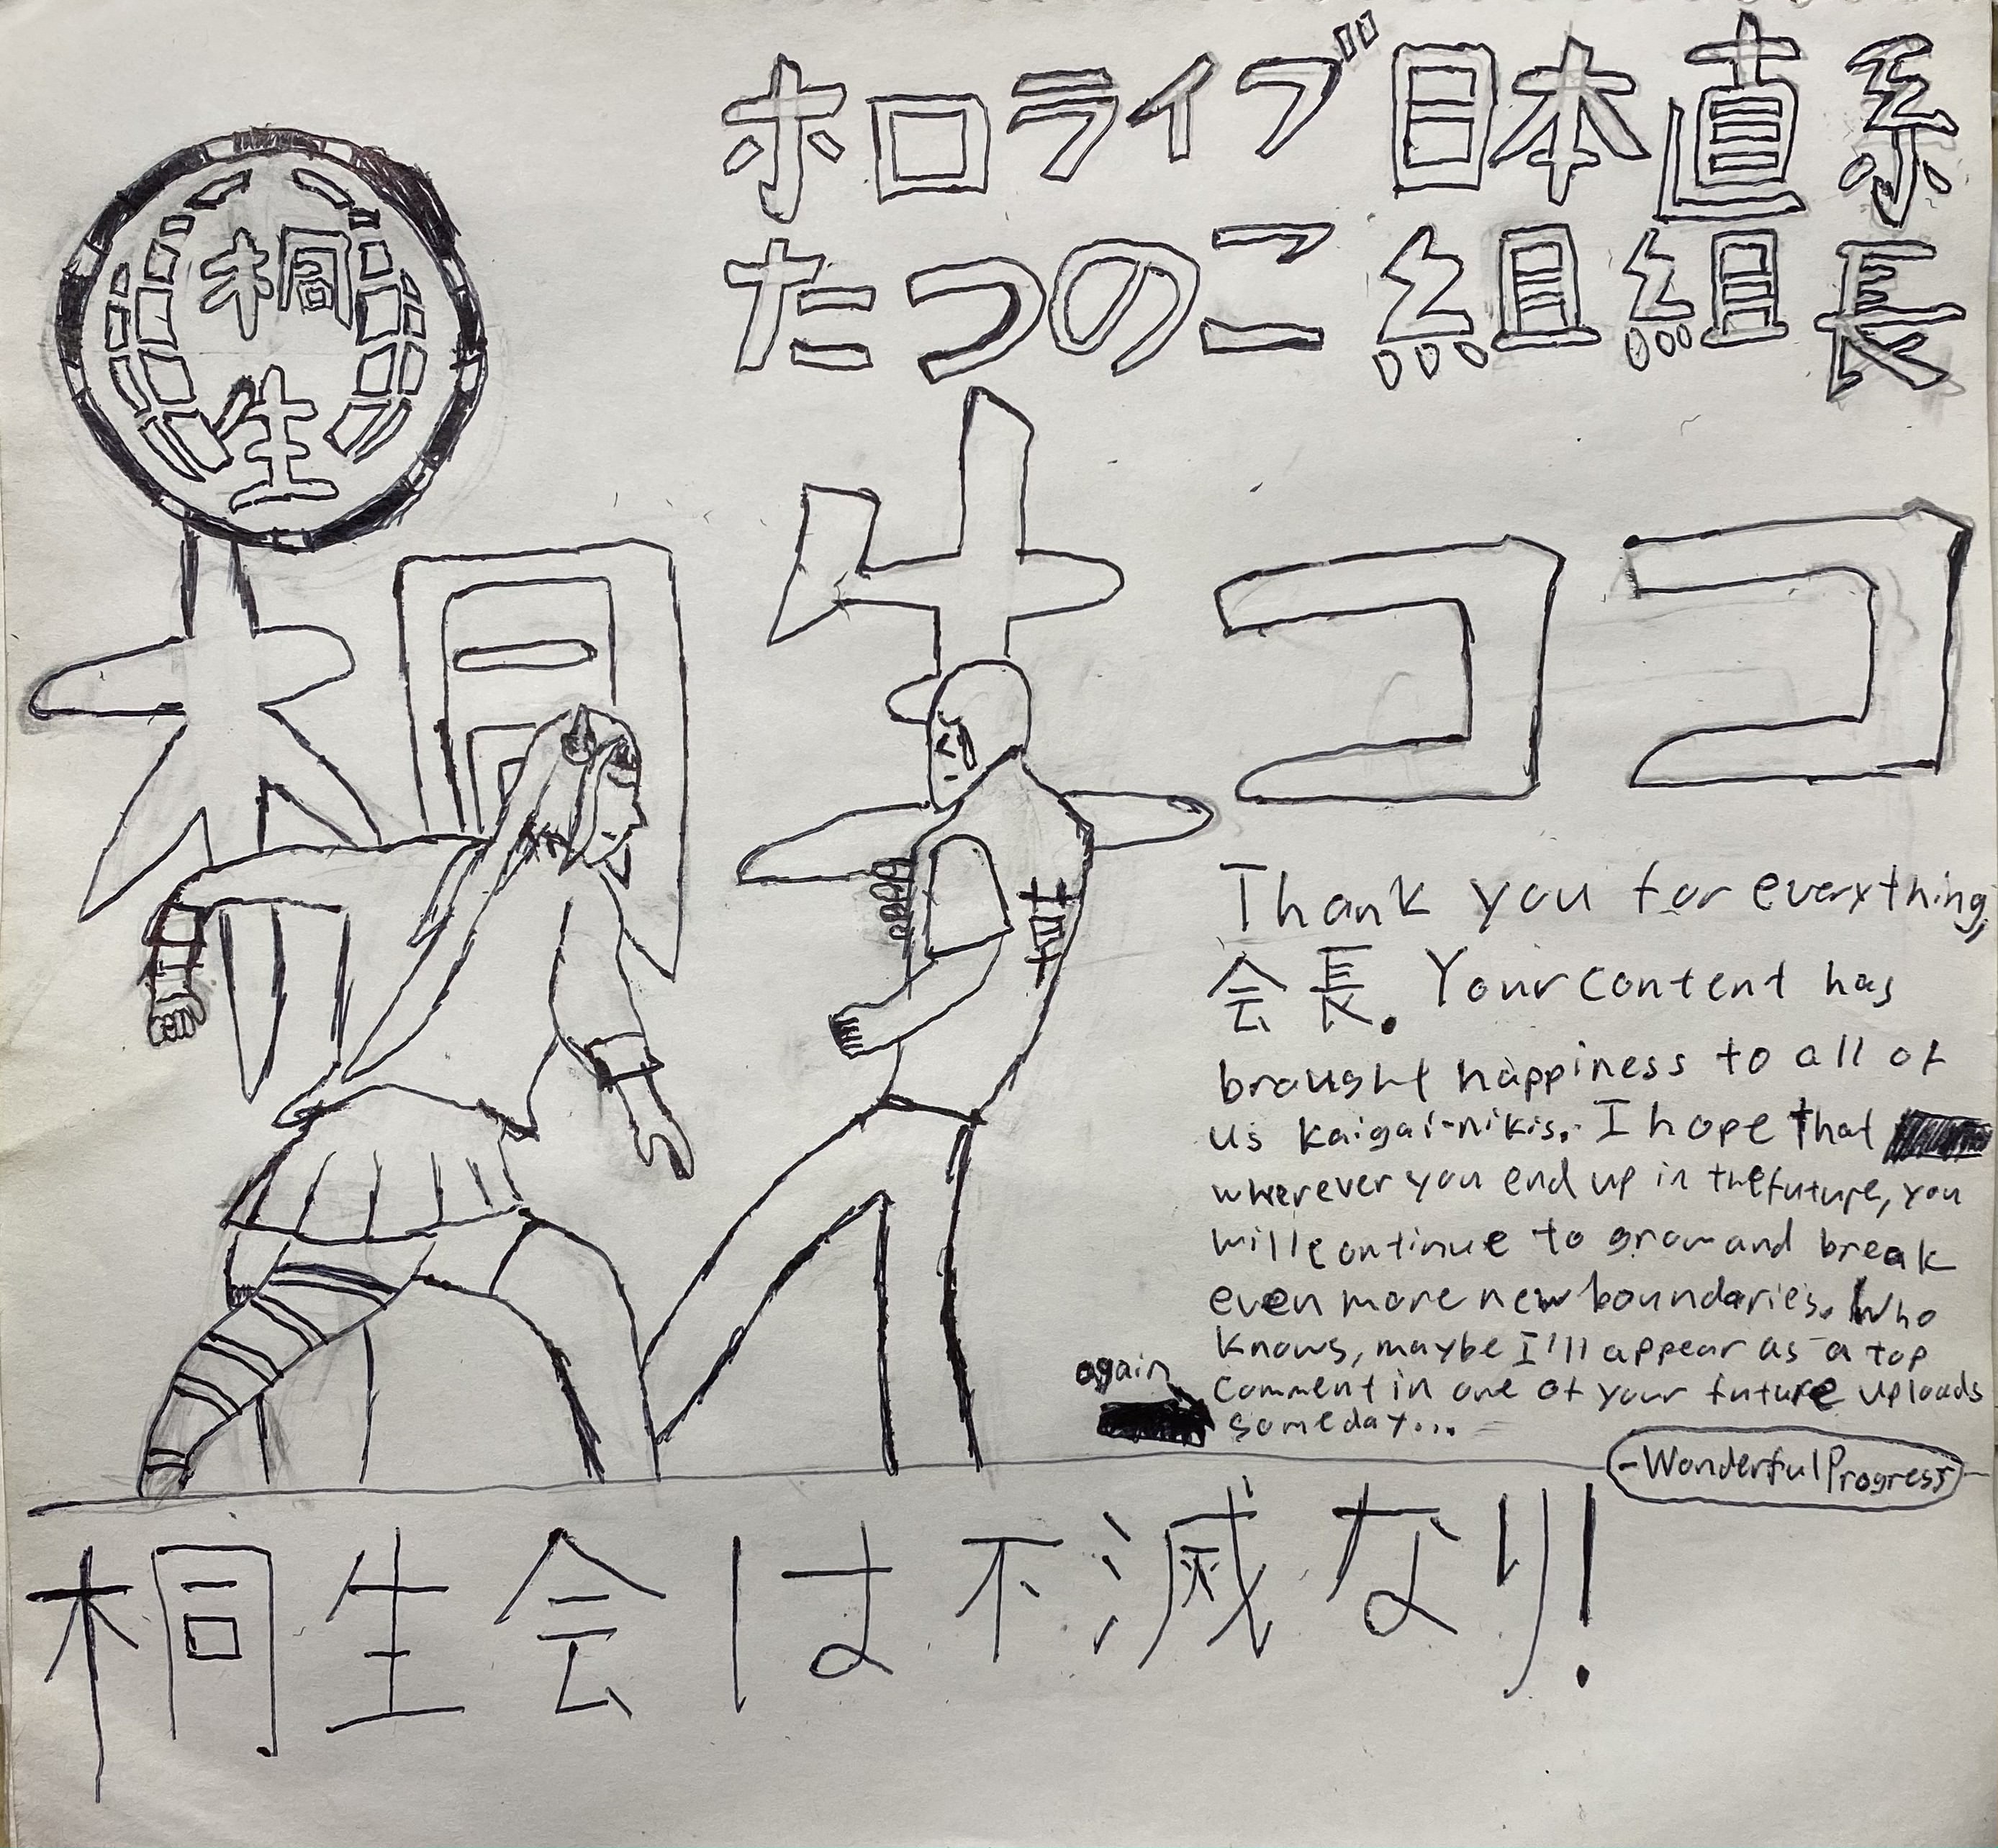 ホロライブ日本直系
たつのこ組組長
桐
生
桐生ココ
草
Thank you for everything,
会長. Your content has
brought happiness to all of
us kaigai-nikis. I hope that
wherever you end up in the future, you
will continue to grow and break
even more new boundaries. Who
knows, maybe I'll appear as a top
comment in one of your future uploads
again someday...
-WonderfulProgress
桐生会は不滅なり!